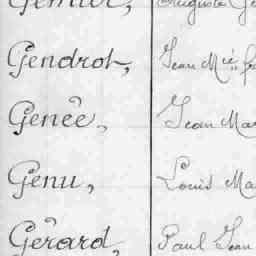 Auguste
Gendrot, Jean Mie
Genêe, Jean Mar
Genu, Louis Ma
Gêrard, Paul Jean